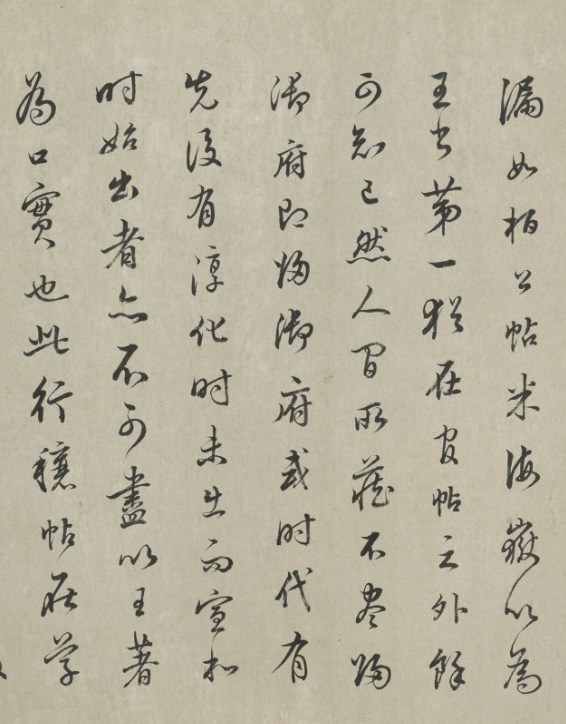 漏如桓公帖米海嶽以為
王書第一猶在官帖之外餘
可知已然人間所藏不盡歸
御府即歸御府或時代有
先後有淳化時未出而宣和
時始出者亦不可盡以王著
為口實也此行穰帖在學